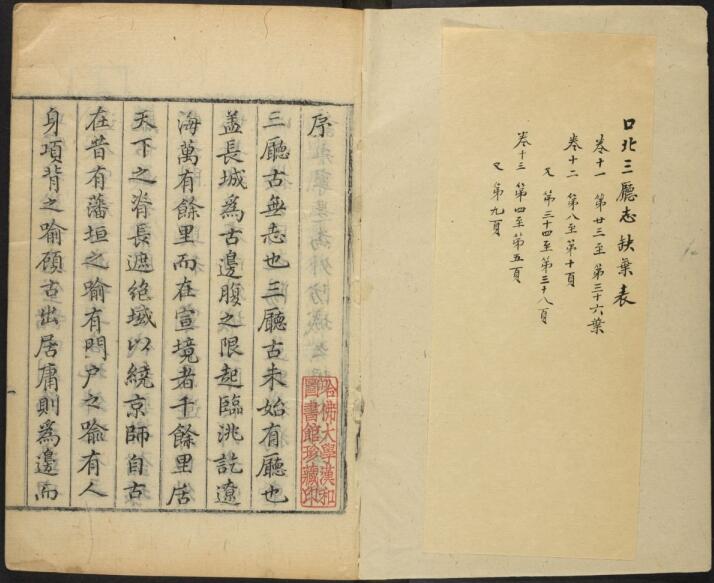 口北三廳志缺葉表
卷十一 第廿三至第三十六葉
卷十二 第八至第十頁
又 第三十四至第三十八頁
卷十三 第四至第五頁
又 第九頁
序
三廳古無志也三廳古未始有廳也
蓋長城為古邊腹之限起臨洮訖遼
海萬有餘里而在宣境者千餘里居
天下之脊長遮絕域以繞京師自古
在昔有藩垣之喻有門户之喻有人
身項背之喻顧古出居庸則為邊而
哈佛大學漢和
圖書館珍藏印